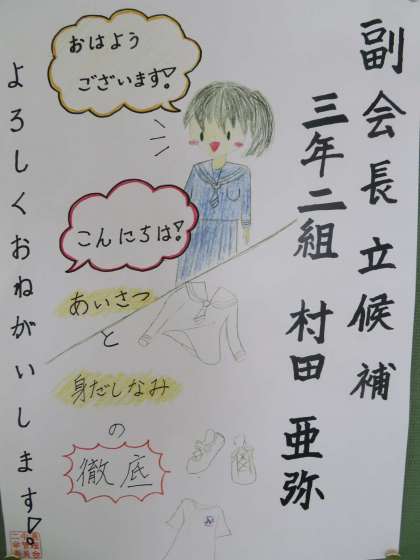 副会長立候補
三年二組 村田 亜弥
おはよう
ございます!
こんにちは!
あいさつ
と
身だしなみ
の
徹底
よろしくおねがいします!